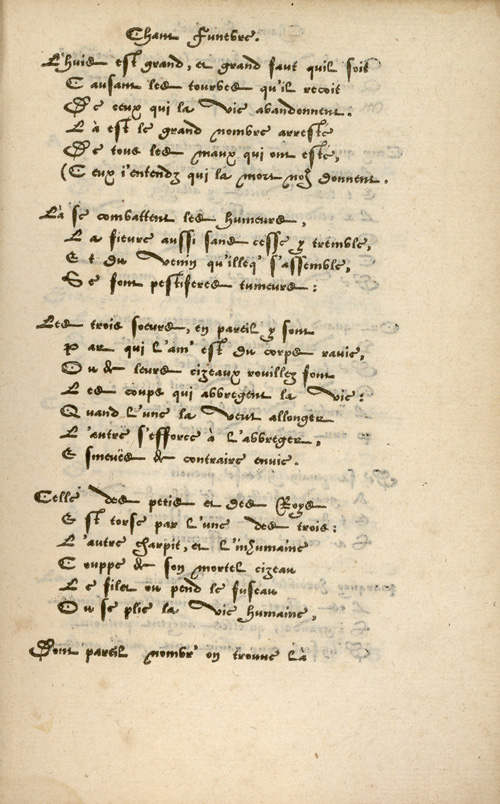 Chant Funebre.
L'huis est grand, et grand faut quil soit
Causant les tourbes qu'il reçoit
De ceux qui la vie abandonnent.
Là est le grand nombre arresté
De tous les maux qui ont esté,
(Ceux i'entendz qui la mort noz donnent.
Là se combattent les humeurs,
La fieure aussi sans cesse y tremble,
Et du venin qu'illeq' s'assemble,
Se font pestiferes tumeurs:
Les trois soeurs, en pareil y sont
Par qui l'am' est du corps ravie,
Ou de leurs cizeaux rouillez font
Les coups qui abbregent la vie:
Quand l'une la veut allonger
L'autre s'efforce à l'abbreger,
Esmeües de contraire envie.
Celle des petis et des Roys
Est torse par l'une des trois:
L'autre charpit, et l'inhumaine
Couppe de son mortel cizeau
Le filet ou pend le fuseau
Ou se plie la vie humaine,
Dont pareil nombr' on trouue là